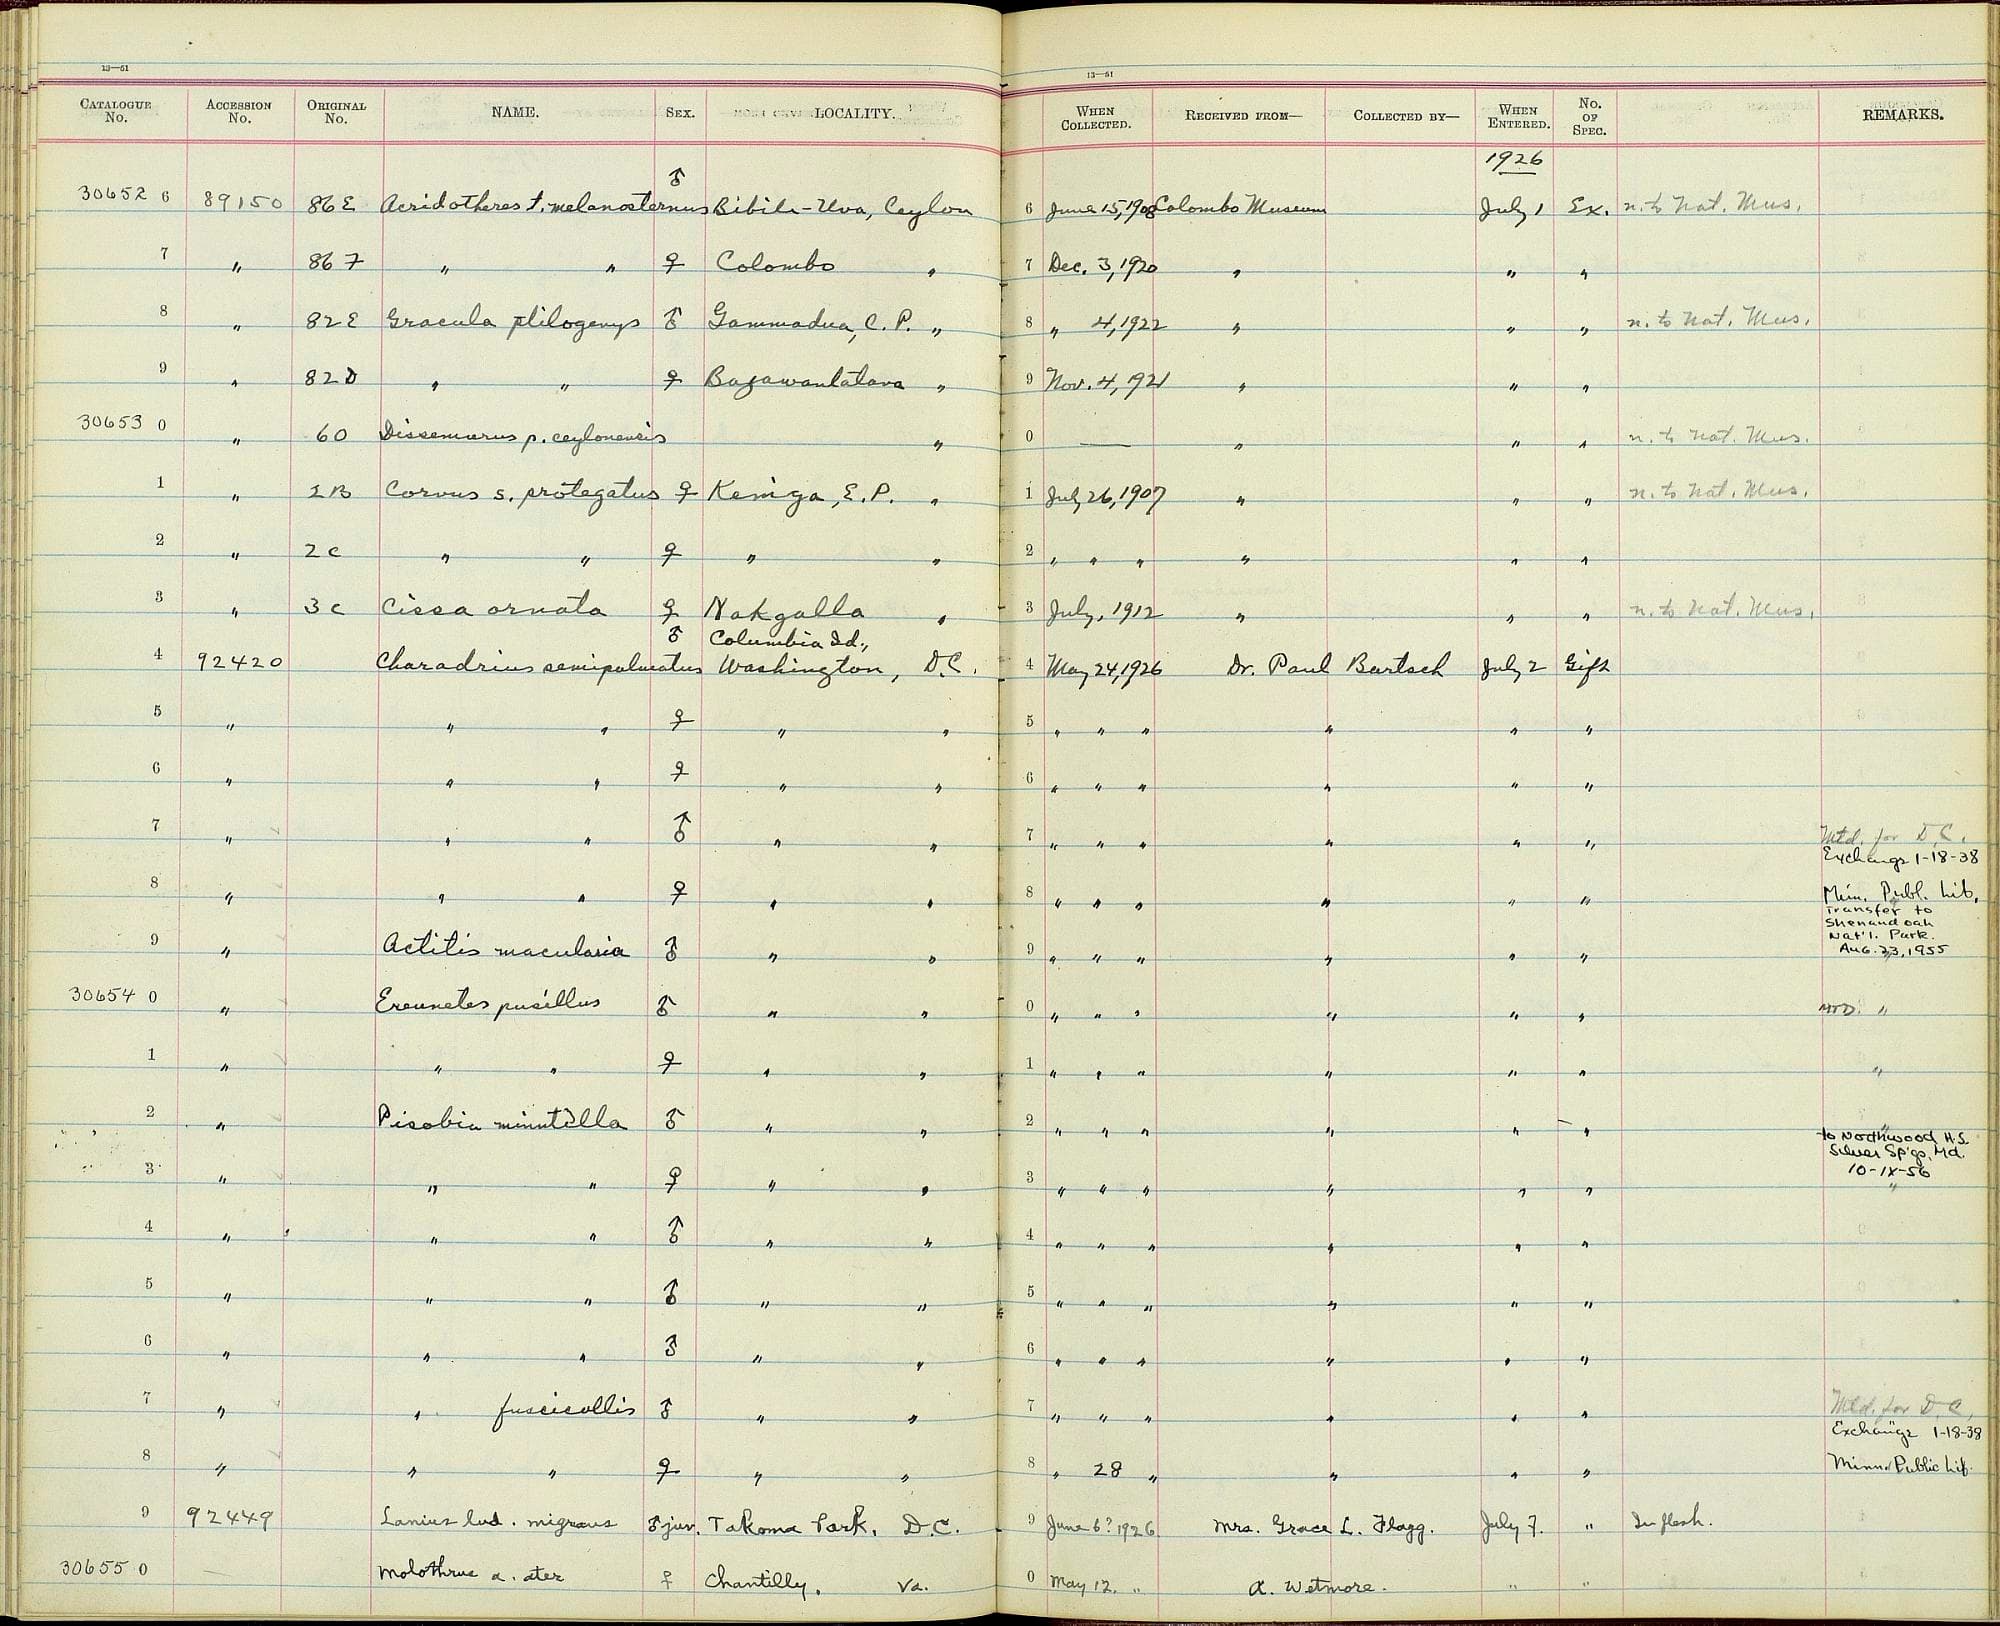 13—51
13—51
CATALOGUE No. ACCESSION No. ORIGINAL No. NAME. SEX. LOCALITY. WHEN COLLECTED. RECEIVED FROM— COLLECTED BY— WHEN ENTERED. No. OF SPEC. REMARKS.
1926
30652 6 89150 86E Acridotheres t. melanosternus ♂ Bibile-Uva, Ceylon 6 June 15, 1908 Colombo Museum July 1 Ex. n. to Nat. Mus.
7 " 86F " " ♀ Colombo " 7 Dec. 3, 1920 " " "
8 " 82E Gracula ptilogenys ♂ Gammadua, C. P. " 8 " 4, 1922 " " " n. to Nat. Mus.
9 " 82D " " ♀ Bagawantatava " 9 Nov. 4, 1921 " " "
30653 0 " 60 Dissemurus p. ceylonensis " 0 — " " " n. to Nat. Mus.
1 " 2B Corvus s. protegatus ♀ Kemga, E. P. " 1 July 26, 1907 " " " n. to Nat. Mus.
2 " 2C " " ♀ " " 2 " " " " " "
3 " 3C Cissa ornata ♀ Nakgalla " 3 July, 1912 " " " n. to Nat. Mus.
4 92420 Charadrius semipalmatus ♂ Columbia Id., Washington, D.C. 4 May 24, 1926 Dr. Paul Bartsch July 2 Gift
5 " " " ♀ " " 5 " " " " " "
6 " " " ♀ " " 6 " " " " " "
7 " " " ♂ " " 7 " " " " " " Mtd. for D.C.
Exchange 1-18-38
8 " " " ♀ " " 8 " " " " " " Minn. Publ. Lib.
Transfer to
Shenandoah
Nat'l. Park.
Aug. 23, 1955
9 " Actitis macularia ♂ " " 9 " " " " " " "
30654 0 " Ereunetes pusillus ♂ " " 0 " " " " " " MTD. "
1 " " " ♀ " " 1 " " " " " " "
2 " Pisobia minutilla ♂ " " 2 " " " " " " "
to Northwood H.S.
Silver Sp'gs, Md.
10-IX-56
3 " " " ♀ " " 3 " " " " " " "
4 " " " ♂ " " 4 " " " " " "
5 " " " ♂ " " 5 " " " " " "
6 " " " ♂ " " 6 " " " " " "
7 " " fuscicollis ♂ " " 7 " " " " " " Mtd. for D.C.
Exchange 1-18-38
8 " " " ♀ " " 8 " 28 " " " " Minn. Public Lib.
9 92449 Lanius lud. migrans ♂ juv. Takoma Park, D.C. 9 June 6? 1926 Mrs. Grace L. Flagg. July 7. " In flesh.
30655 0 Molothrus a. ater ♀ Chantilly, Va. 0 May 12, " A. Wetmore. " "